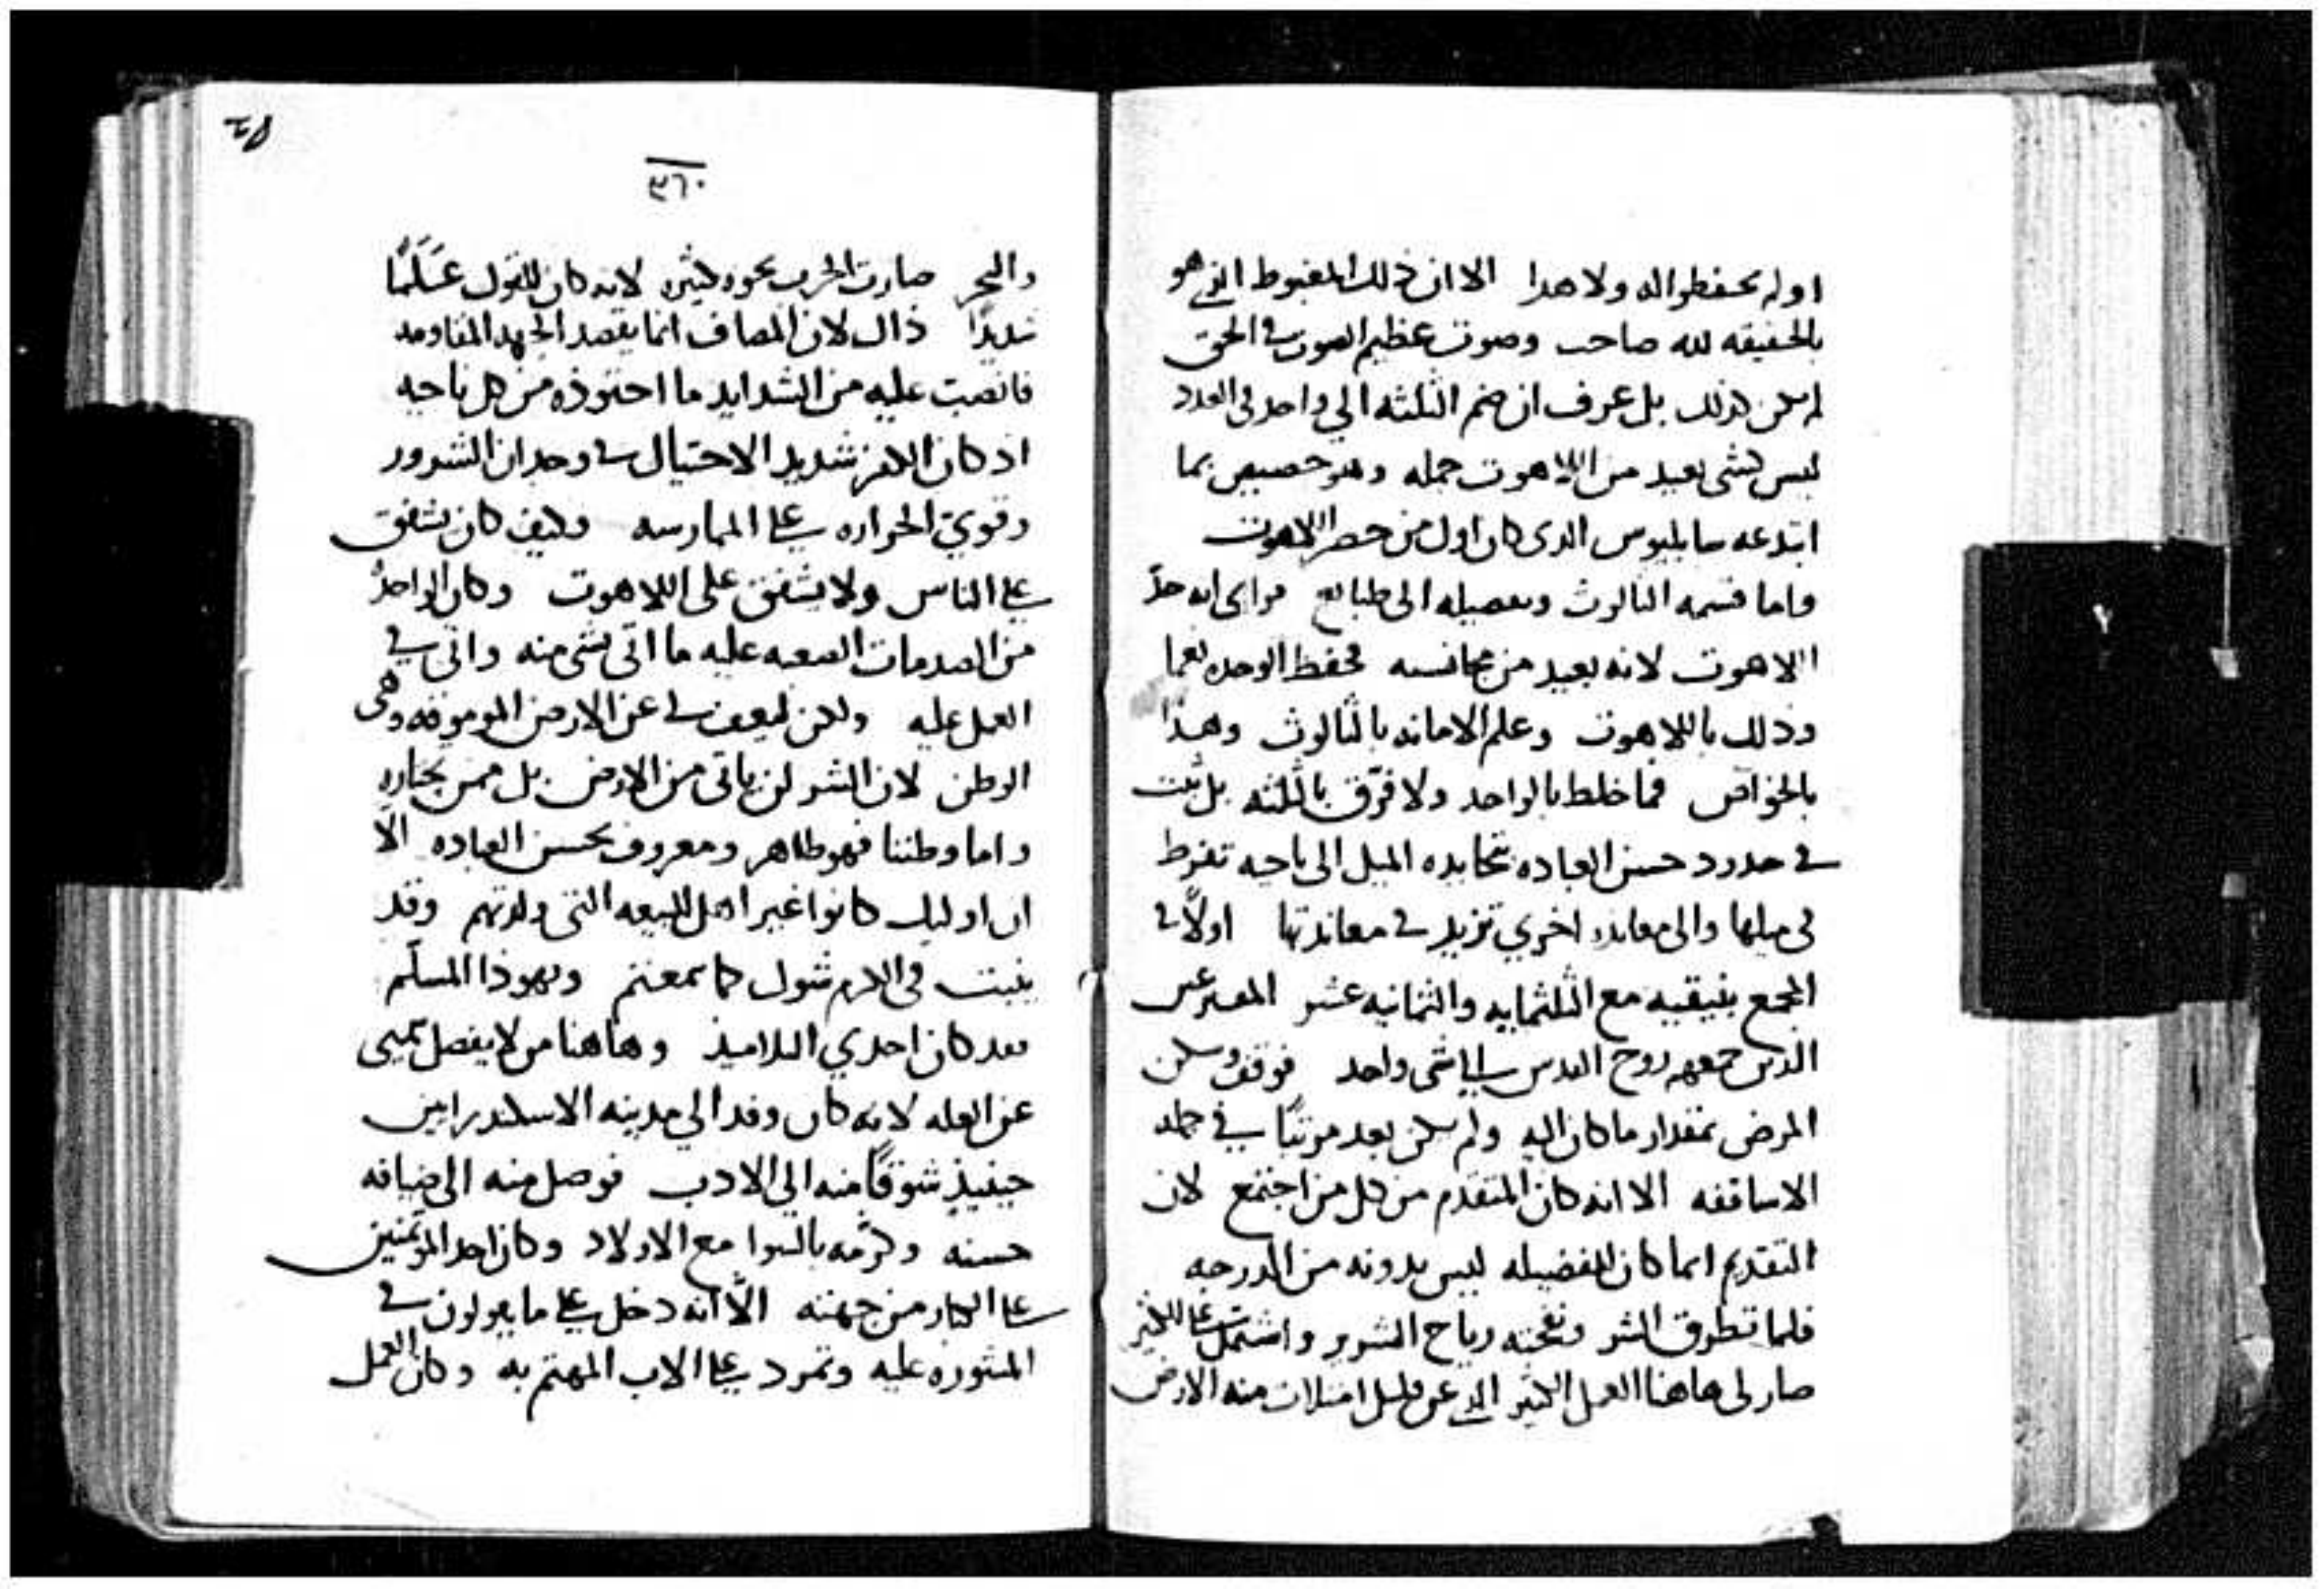 او لم يحفظوا اله ولا هدا الا ان ذلك المغبوط الذي هو
بالحقيقه لله صاحب وصوت عظيم الصوت في الحق
لم يكن كذلك بل عرف ان ضم الثلثه الي واحد في العدد
ليس بشي بعيد من اللاهوت جمله وهو خصيص بما
ابتدعه سابليوس الدى كان اول من حصر اللاهوت
واما قسمه الثالوث وتفصيله الى طبايع فراى انه حدّ
اللاهوت لانه بعيد من مجانسه فحفظ الوحده نعما
وذلك باللاهوت وعلم الامانه بالثالوث وهذا
بالخواص فما خلط بالواحد ولا فرّق بالثلثه بل ثبت
في حدود حسن العباده بمحايده الميل الى ناحيه تفرط
في ميلها والى معانده اخري تزيد في معاندتها اولاً في
المجمع بنيقيه مع الثلثمايه والثمانيه عشر
الذين جمعهم روح القدس الي شي واحد فوقف وسكن
المرض بمقدار ما كان اليه ولم يكن بعد مرتبًا في جمله
الاساقفه الا انه كان المتقدم من كل من اجتمع لان
التقديم انما كان للفضيله ليس بدونه من الدرجه
فلما تطرق الشر ونفخته رياح الشرير واشتمل على الكثير
صار لى هاهنا العمل الكثير الذي عن قليل امتلات منه الارض
٣٦٠
والبحر صارت الحرب نحوه كثيره لانه كان للقول
شديدًا ذاك لان المصاف انما يقصد الجهد المقاومه
فانصبت عليه من الشدايد ما احتوذه من كل ناحيه
اذ كان الكفر شديد الاحتيال في وجدان الشرور
وقوي الحراره على الممارسه وكيف كان يشفق
على الناس ولا يشفق على اللاهوت وكان الواحد
من الصدمات الصعبه عليه ما اتى بشي منه واتى في
العمل عليه ولكن ليعف لي عن الارض الموموقه وهى
الوطن لان الشر لن ياتى من الارض بل ممن يختاره
واما وطننا فهو طاهر ومعروف بحسن العباده الّا
ان اوليك كانوا غير اهل للبيعه التى ولدتهم وقد
ينبت في الكرم شوك كما سمعتم ويهوذا المسلّم
فقد كان احدي التلاميذ وهاهنا من لا يفصل سميى
عن العله لانه كان وفد الي مدينه الاسكندرانيين
حينيذٍ شوقًا منه الي الادب فوصل منه الى ضيافه
حسنه وكرّمه بالسوا مع الاولاد وكان احد المؤتمنين
على الكبار من جهته الّا انه دخل على ما يقولون في
المثوره عليه وتمرد على الاب المهتم به وكان العمل